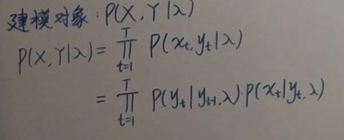 建模对象: P(X, Y|λ)
P(X, Y|λ) = ∏_{t=1}^{T} P(x_t, y_t|λ)
= ∏_{t=1}^{T} P(y_t|y_{t-1}, λ)·P(x_t|y_t, λ)